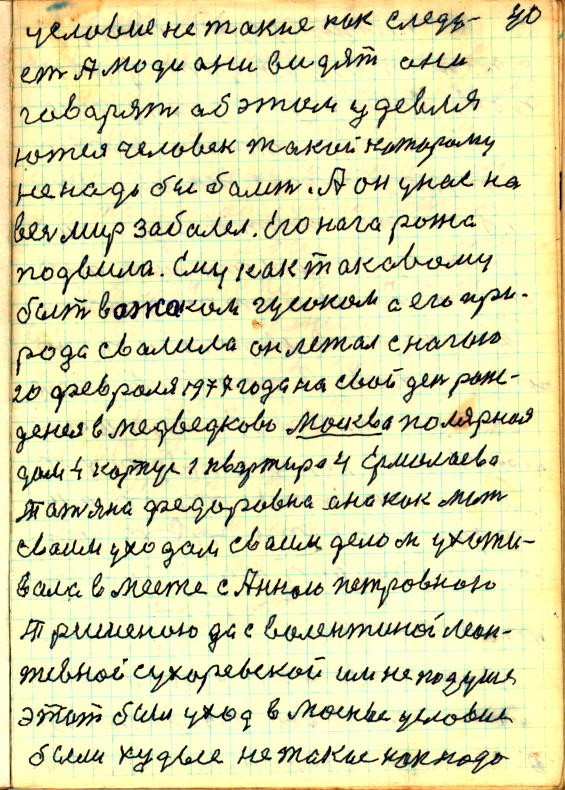 40
условие не такие как следу-
ет А люди они видят они
говарят аб этом удевля
ются человек такой каторому
не надь бы балет. А он у нас на
весь мир забалел. Его нага рожа
подвила. Ему как таковому
быт важаком гусоком а его при-
рода свалила он летал с нагою
20 февраля 1977 года на свой ден рож-
дения в медведково Москва полярная
дом 4 карпус 1 квартира 4 Ермолаева
Татяна федоровна ана как мат
сваим уходам сваим делом ухажи-
вала в месте с Анною петровною
Тришеною да с валентиной леон-
тевной сухаревской им не подуше
этот были уход в москве условие
были худые не такие как надо